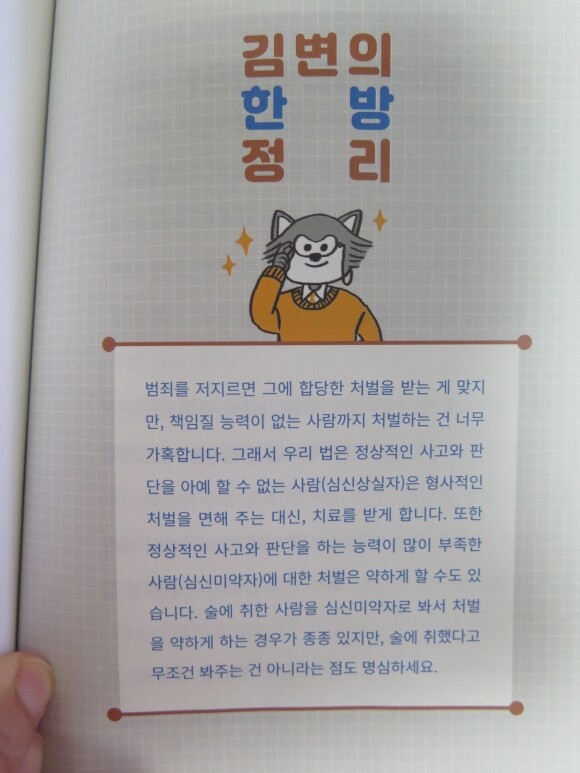 김변의
한 방
정 리
범죄를 저지르면 그에 합당한 처벌을 받는 게 맞지
만, 책임질 능력이 없는 사람까지 처벌하는 건 너무
가혹합니다. 그래서 우리 법은 정상적인 사고와 판
단을 아예 할 수 없는 사람(심신상실자)은 형사적인
처벌을 면해 주는 대신, 치료를 받게 합니다. 또한
정상적인 사고와 판단을 하는 능력이 많이 부족한
사람(심신미약자)에 대한 처벌은 약하게 할 수도 있
습니다. 술에 취한 사람을 심신미약자로 봐서 처벌
을 약하게 하는 경우가 종종 있지만, 술에 취했다고
무조건 봐주는 건 아니라는 점도 명심하세요.